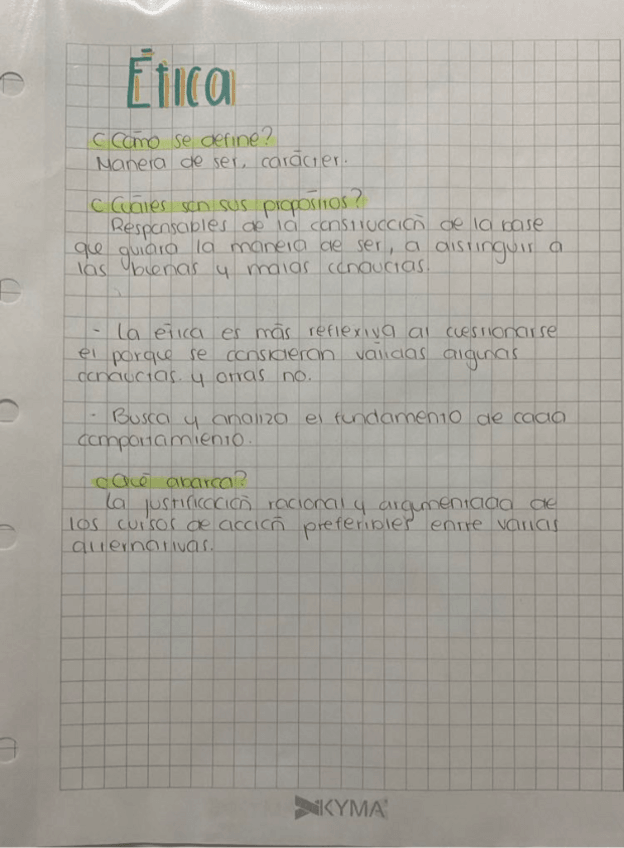 Ética
¿Cómo se define?
Manera de ser, carácter.
¿Cuáles son sus propósitos?
Responsables de la construcción de la base
que guiará la manera de ser, a distinguir a
las buenas y malas conductas.
- La ética es más reflexiva al cuestionarse
el porque se consideran válidas algunas
conductas y otras no.
- Busca y analiza el fundamento de cada
comportamiento.
¿Qué abarca?
La justificación racional y argumentada de
los cursos de acción preferibles entre varias
alternativas.
KYMA